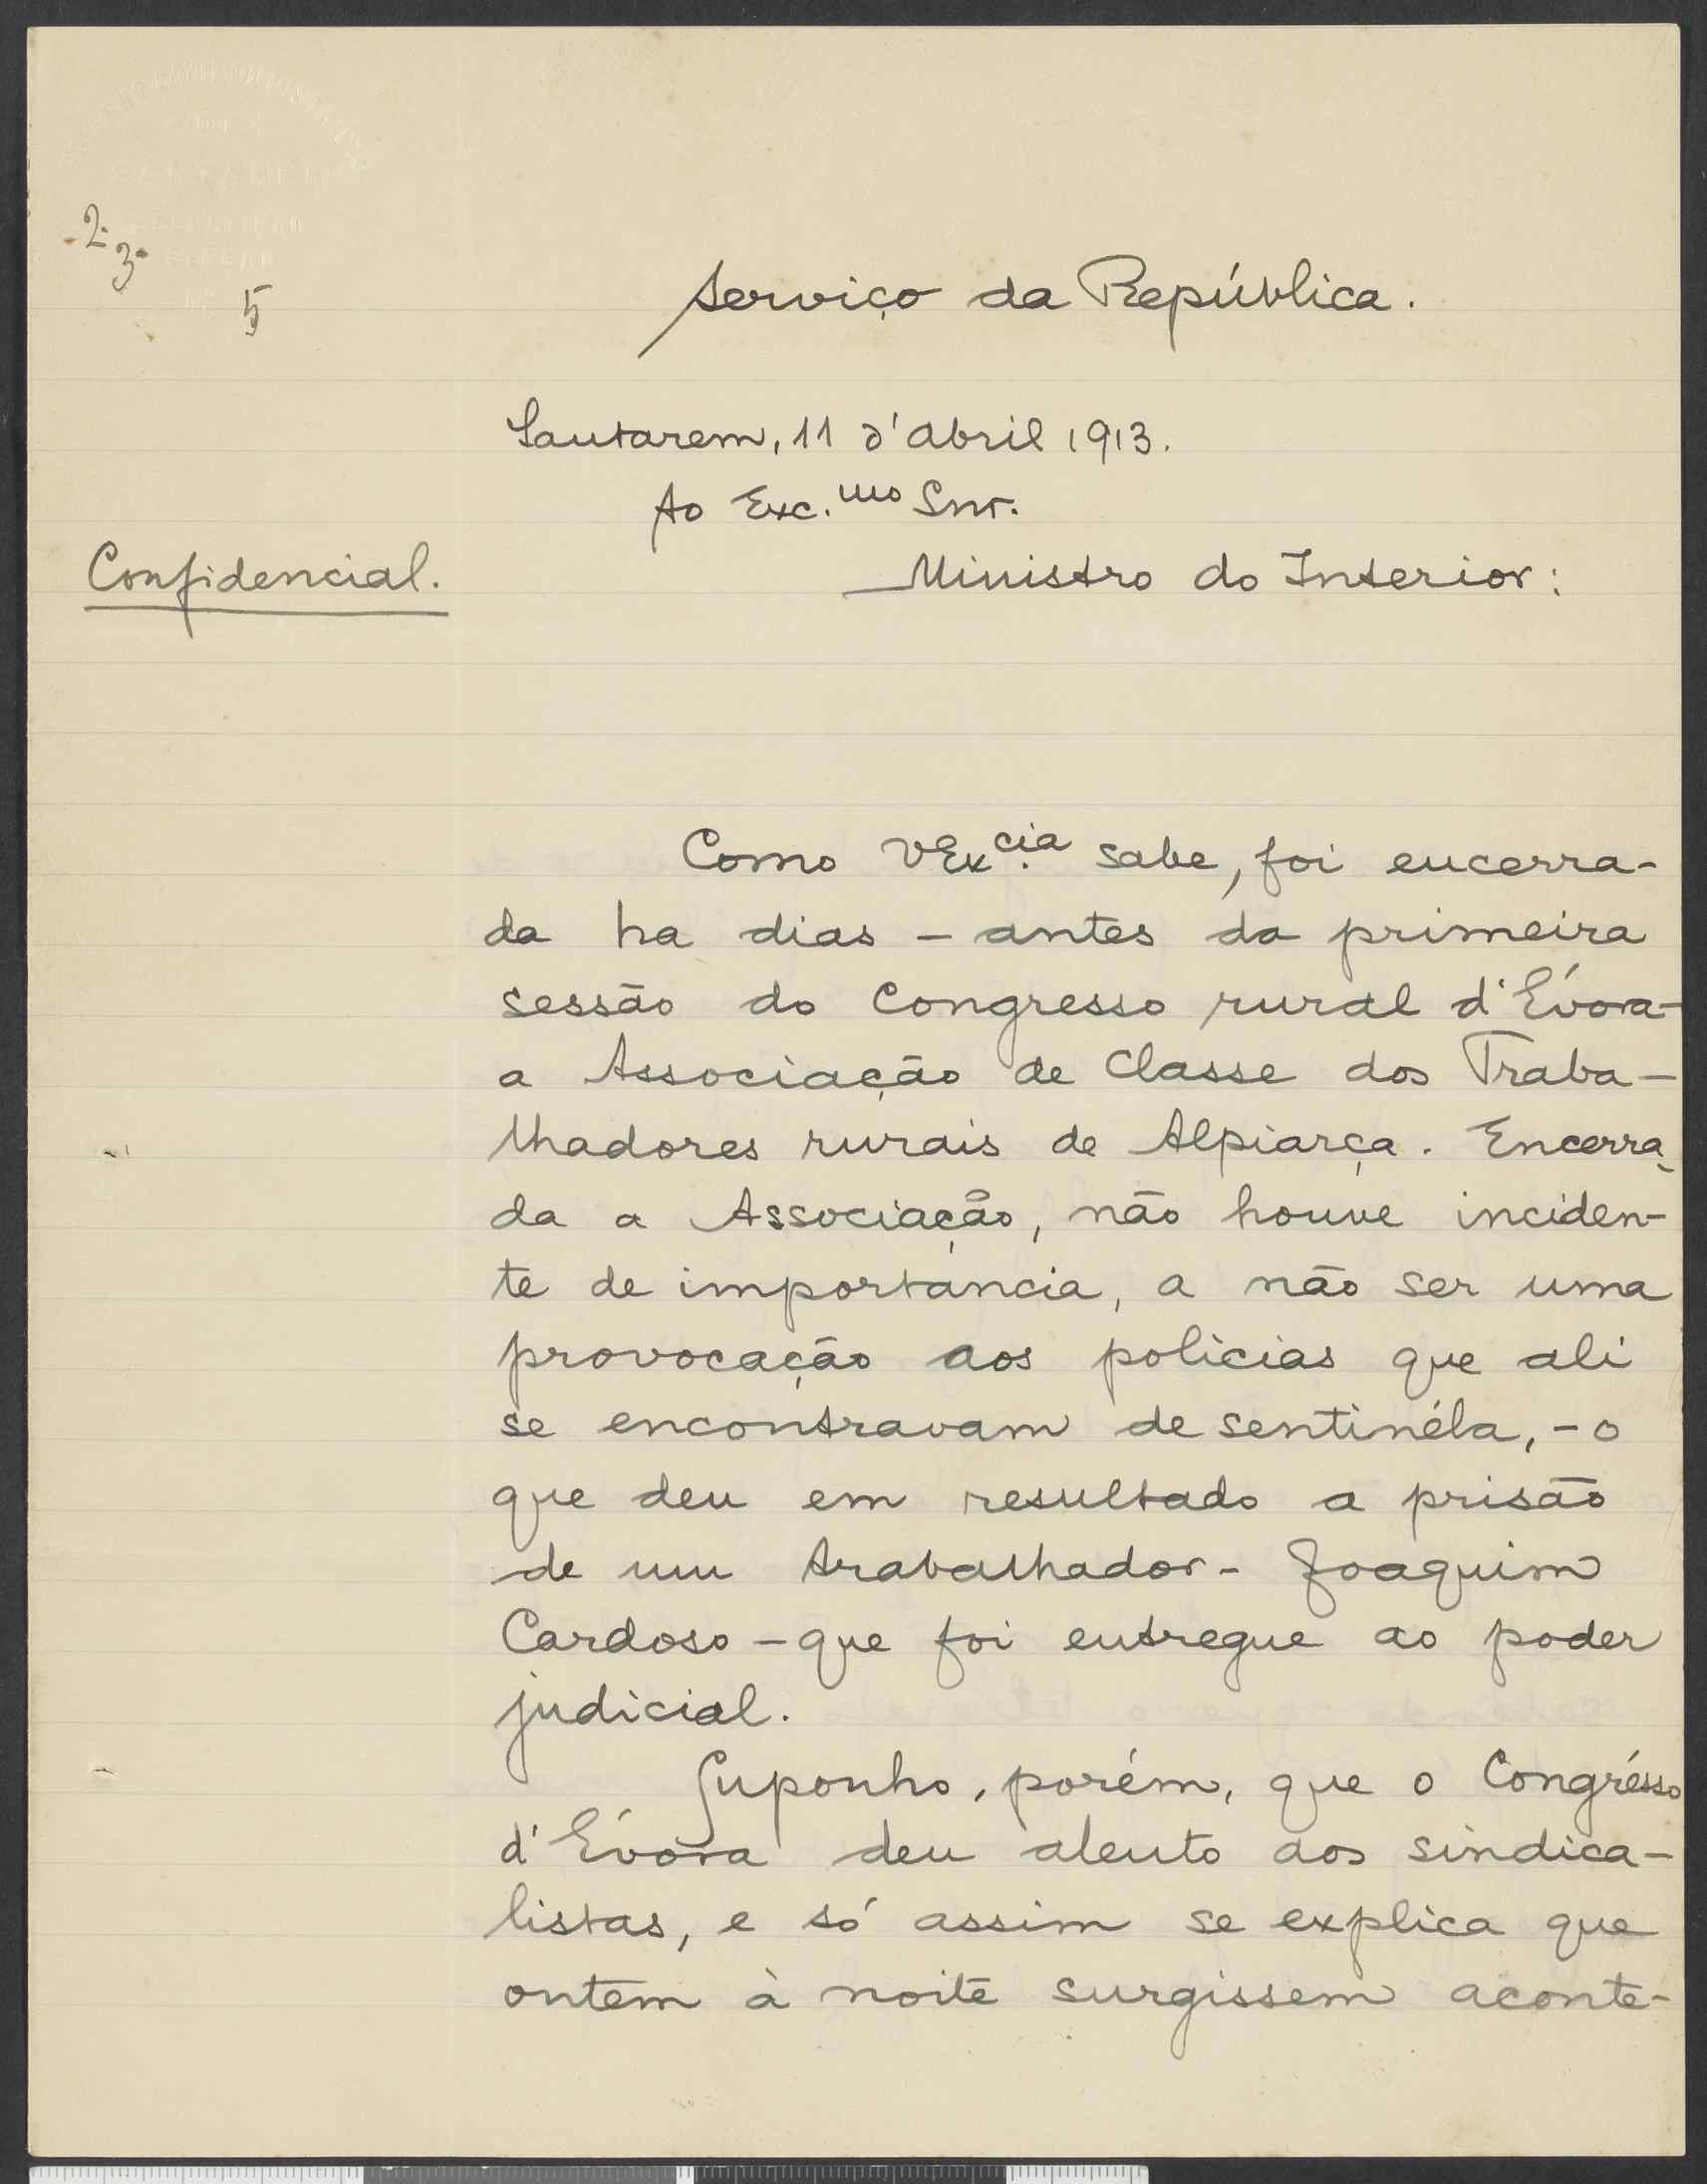 2.
3.
5
Serviço da República.
Santarem, 11 d'abril 1913.
Ao Exc.mo Snr.
Confidencial.
Ministro do Interior:
Como VEx.cia sabe, foi encerra-
da ha dias - antes da primeira
sessão do Congresso rural d'Évora-
a Associação de Classe dos Traba-
lhadores rurais de Alpiarça. Encerra-
da a Associação, não houve inciden-
te de importancia, a não ser uma
provocação aos policias que ali
se encontravam de sentinéla, - o
que deu em resultado a prisão
de um trabalhador - Joaquim
Cardoso - que foi entregue ao poder
judicial.
Suponho, porém, que o Congrésso
d'Évora deu alento aos sindica-
listas, e só assim se explica que
ontem à noite surgissem aconte-